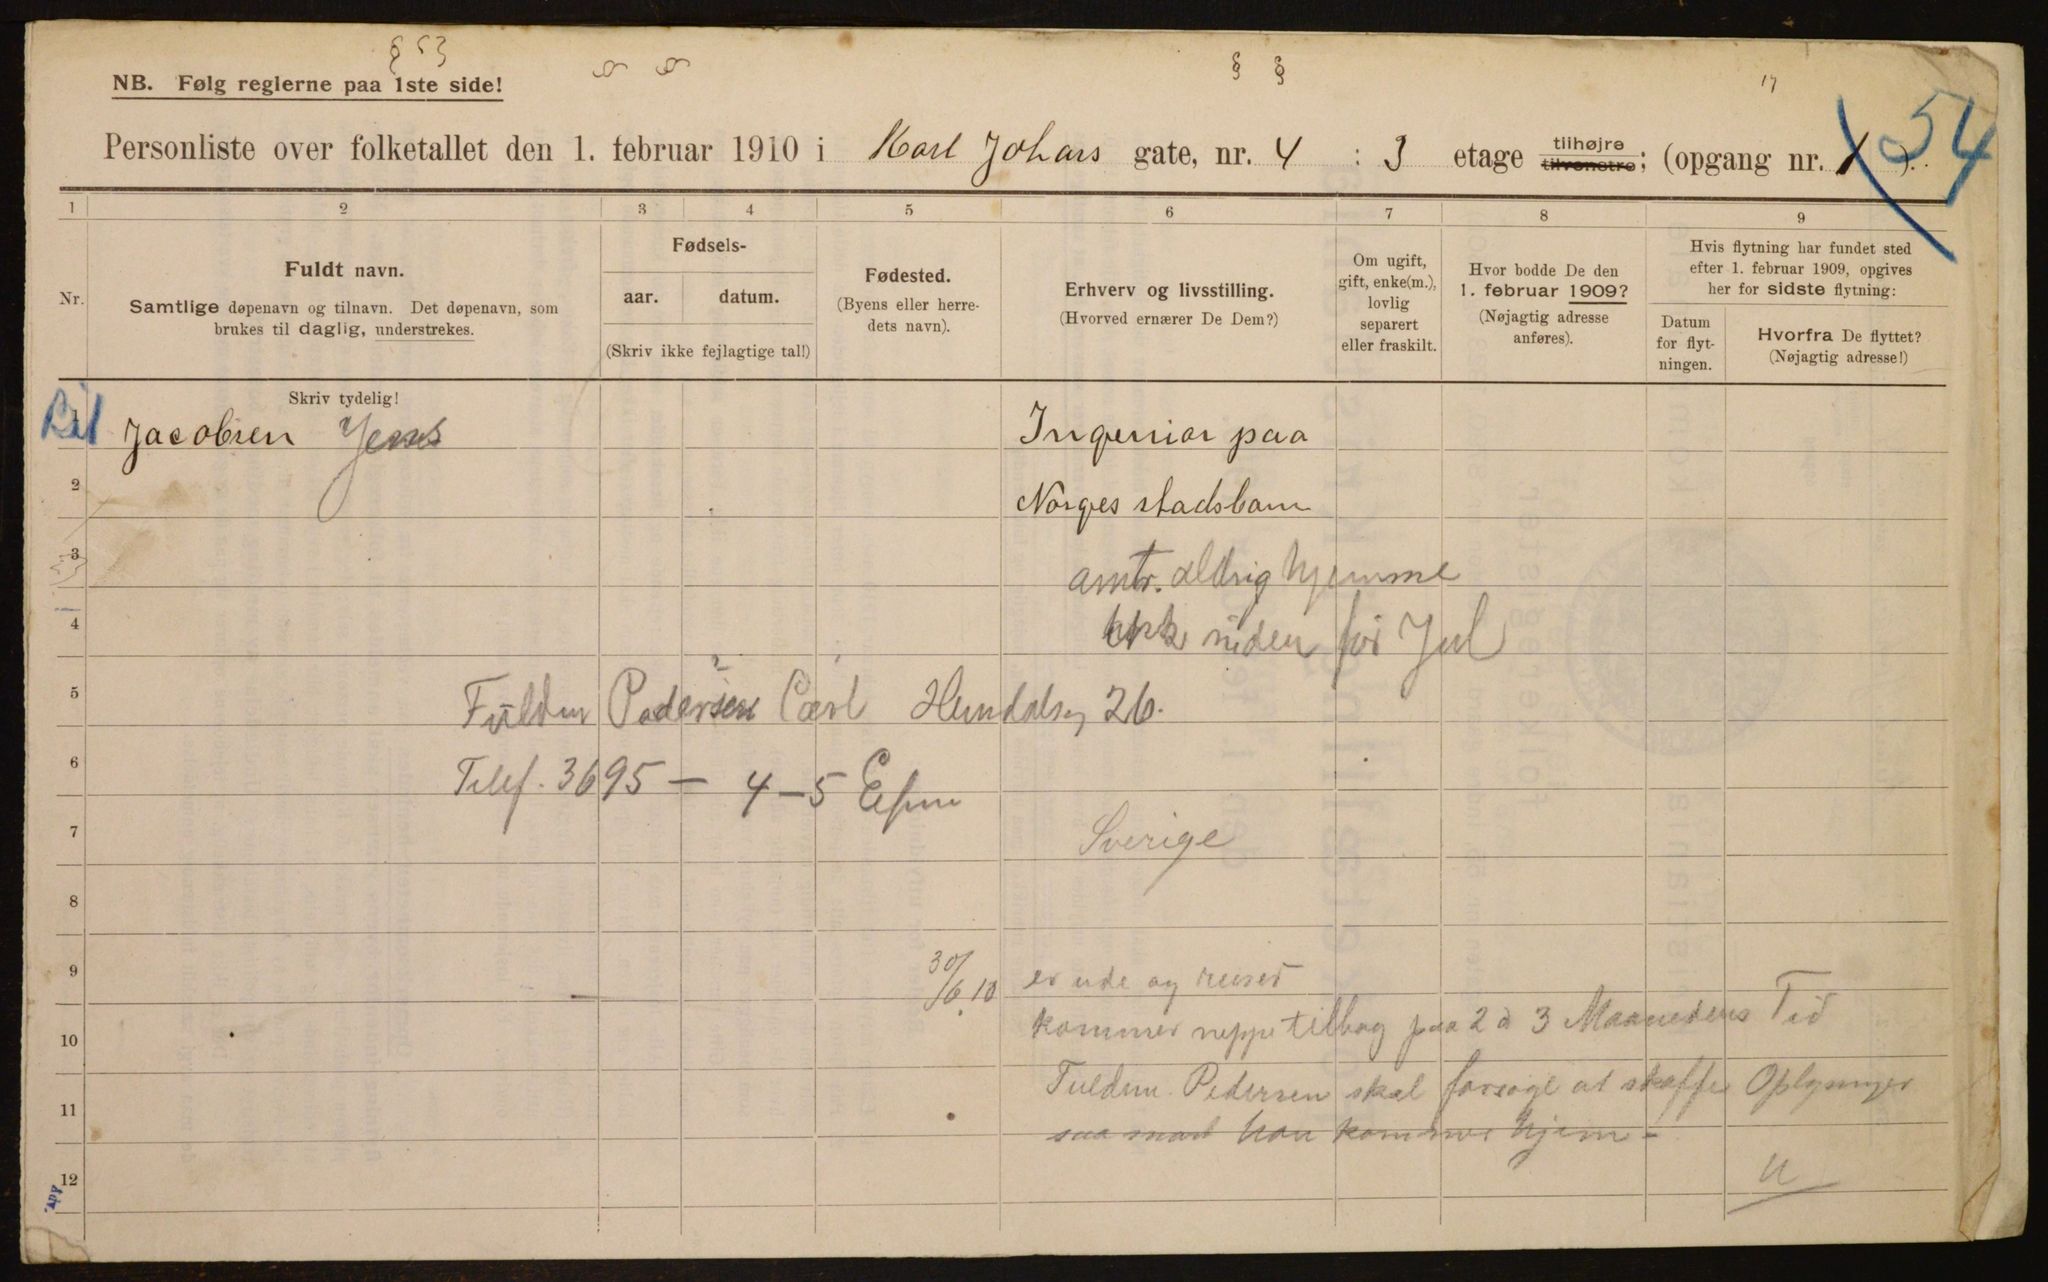 § §
§ §
§ §
17
NB. Følg reglerne paa 1ste side!
54
Personliste over folketallet den 1. februar 1910 i Karl Johans gate, nr. 4 : 3 etage tilhøjre tilvenstre; (opgang nr. 1).
1 2 3 4 5 6 7 8 9
Nr.
Fuldt navn.
Samtlige døpenavn og tilnavn. Det døpenavn, som
brukes til daglig, understrekes.
Fødsels-
aar. datum.
(Skriv ikke fejlagtige tal!)
Fødested.
(Byens eller herre-
dets navn).
Erhverv og livsstilling.
(Hvorved ernærer De Dem?)
Om ugift,
gift, enke(m.),
lovlig
separert
eller fraskilt.
Hvor bodde De den
1. februar 1909?
(Nøjagtig adresse
anføres).
Hvis flytning har fundet sted
efter 1. februar 1909, opgives
her for sidste flytning:
Datum
for flyt-
ningen.
Hvorfra De flyttet?
(Nøjagtig adresse!)
Skriv tydelig!
1 Jacobsen Jens Ingeniør paa
2 Norges stadsbam
3 amtr. aldrig hjemme
4 siden før Jul
5 Pedersen Carl 26.
6 Telef. 3695 — 4–5 Efm
7 Sverige
8
9 30/6 10 er ude og reiser
10 kommer neppe tilbag paa 2 à 3 Maaneders Tid
11 Fuldm. Pedersen skal forsøge at skaffe Oplysninger
saa snart han kommer hjem –
12